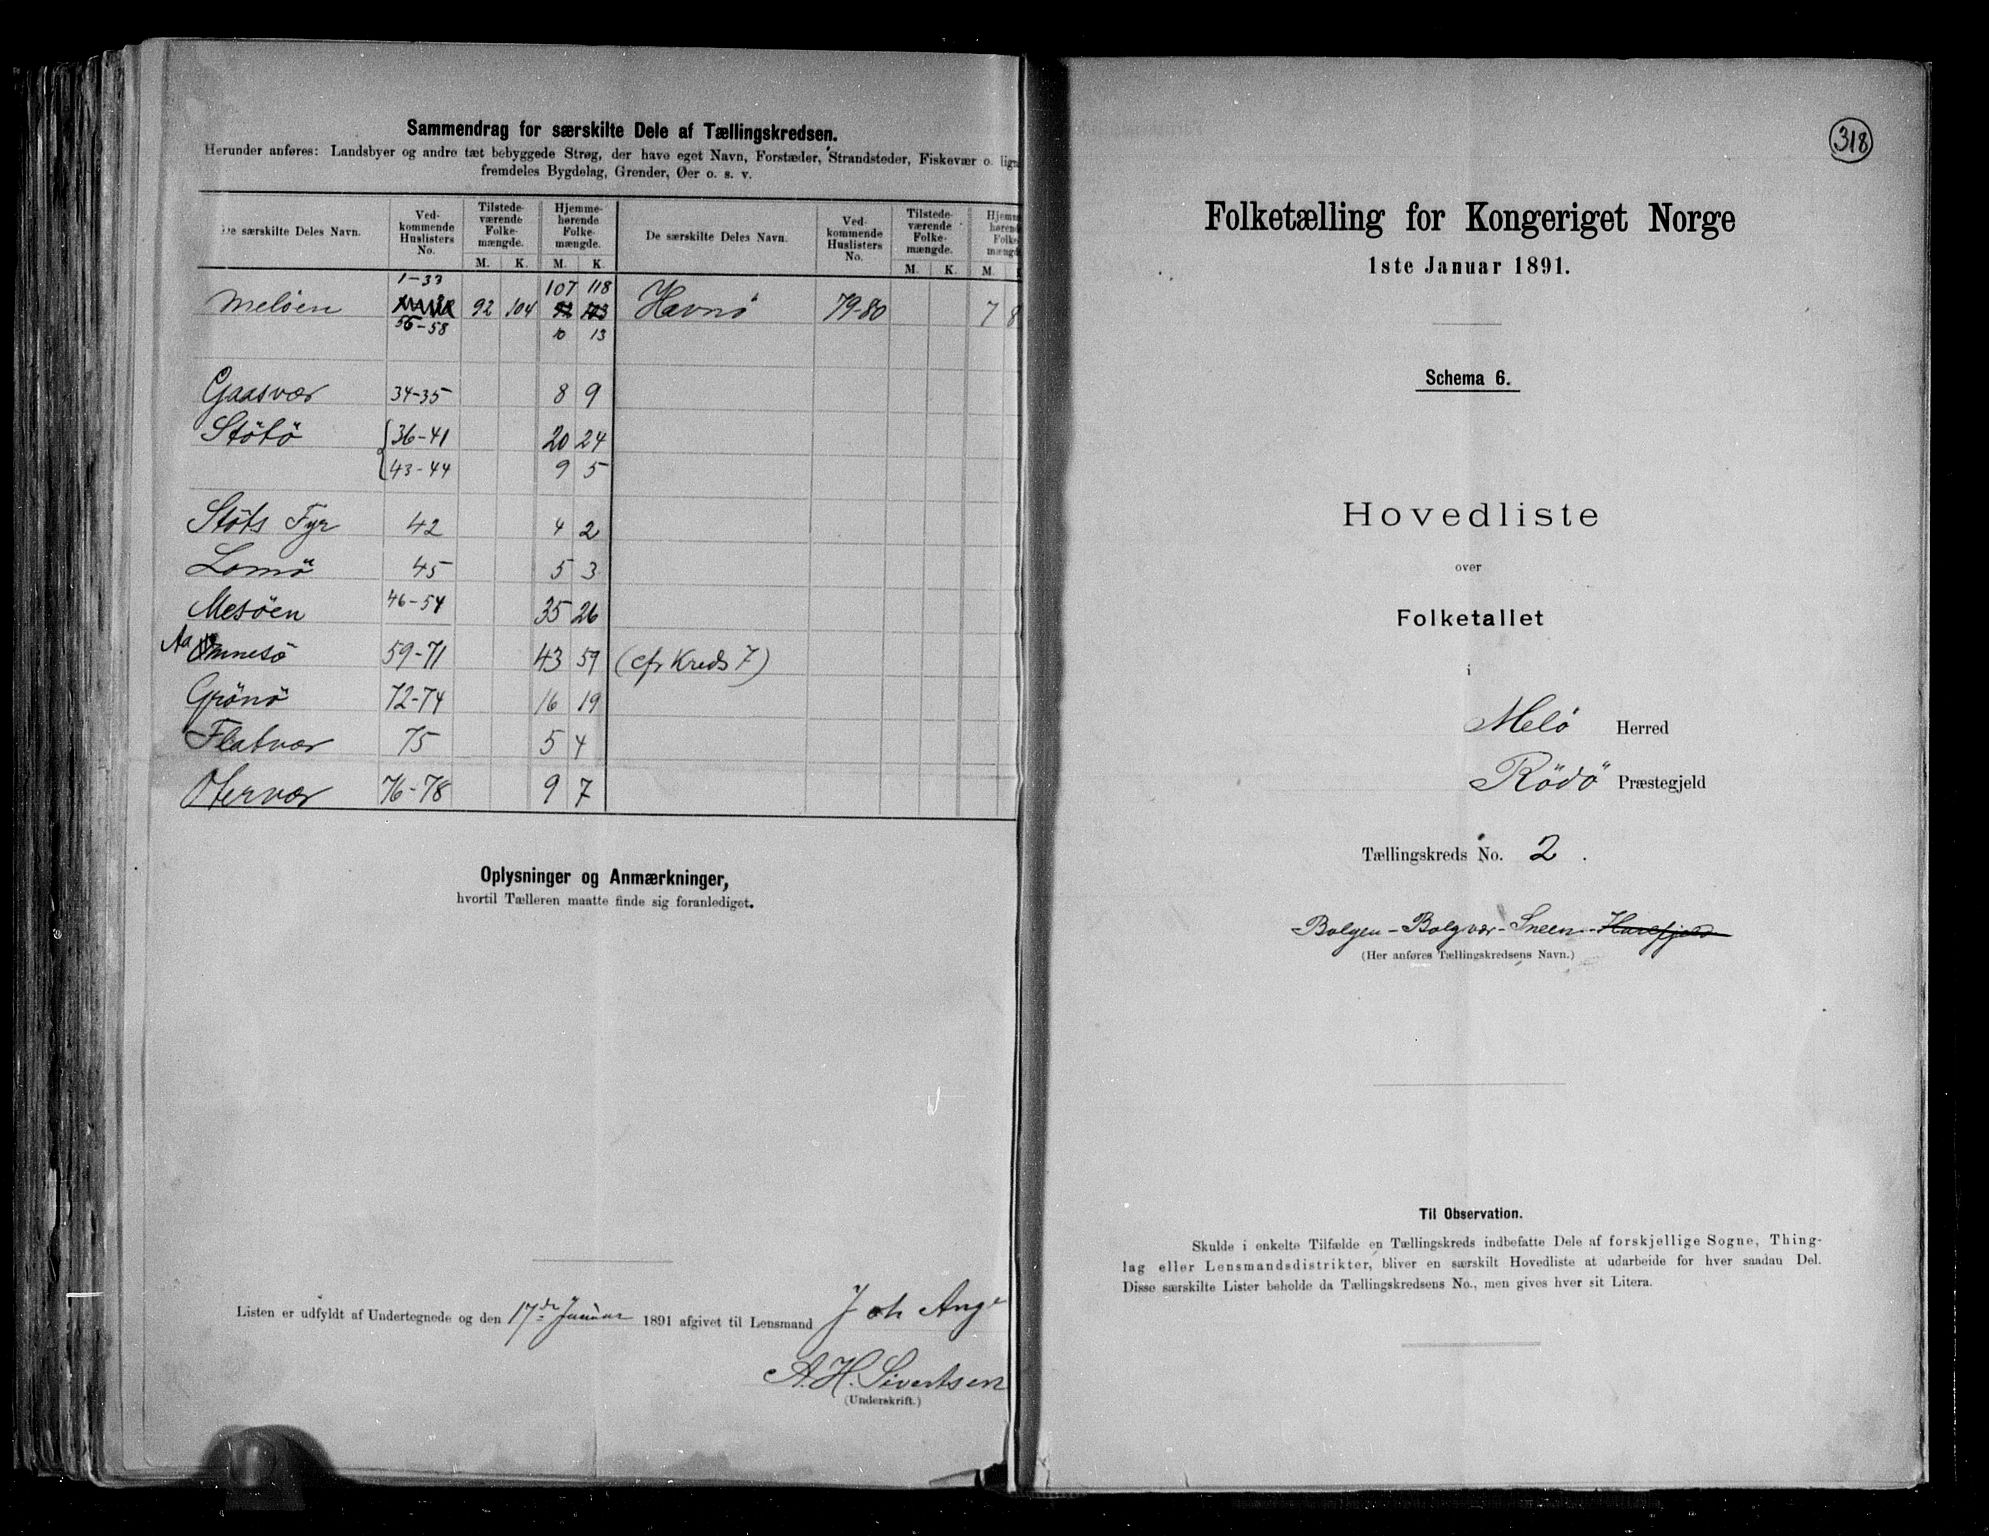 Sammendrag for særskilte Dele af Tællingskredsen.
Herunder anføres: Landsbyer og andre tæt bebyggede Strøg, der have eget Navn, Forstæder, Strandsteder, Fiskevær o. lign
fremdeles Bygdelag, Grender, Øer o. s. v.
De særskilte Deles Navn. Ved-kommende Huslisters No. Tilstede-værende Folke-mængde. Hjemme-hørende Folke-mængde. De særskilte Deles Navn. Ved-kommende Huslisters No. Tilstede-værende Folke-mængde. Hjemme-hørende Folke-mængde
M. K. M. K. M. K. M. K
1-33 107 118
Meløen 92 104 92 Havnö 79-80 7 8
56-58 10 13
Gaasvær 34-35 8 9
Stötö 36-41 20 24
43-44 9 5
Stöts Fyr 42 4 2
Lomö 45 5 3
Mesöen 46-54 35 26
Aamnesö 59-71 43 59 (cfr Kreds 7)
Grönö 72-74 16 19
Flatvær 75 5 4
Otervær 76-78 9 7
Oplysninger og Anmærkninger,
hvortil Tælleren maatte finde sig foranlediget.
Listen er udfyldt af Undertegnede og den 17de Januar 1891 afgivet til Lensmand Joh Ange
A. H. Sivertsen
(Underskrift.)
318
Folketælling for Kongeriget Norge
1ste Januar 1891.
Schema 6.
Hovedliste
over
Folketallet
i
Melö Herred
Rödö Præstegjeld
Tællingskreds No. 2.
Bolgen - Bolgvær - Sneen - Havfjeld
(Her anføres Tællingskredsens Navn.)
Til Observation.
Skulde i enkelte Tilfælde en Tællingskreds indbefatte Dele af forskjellige Sogne, Thing-
lag eller Lensmandsdistrikter, bliver en særskilt Hovedliste at udarbeide for hver saadan Del.
Disse særskilte Lister beholde da Tællingskredsens No., men gives hver sit Litera.